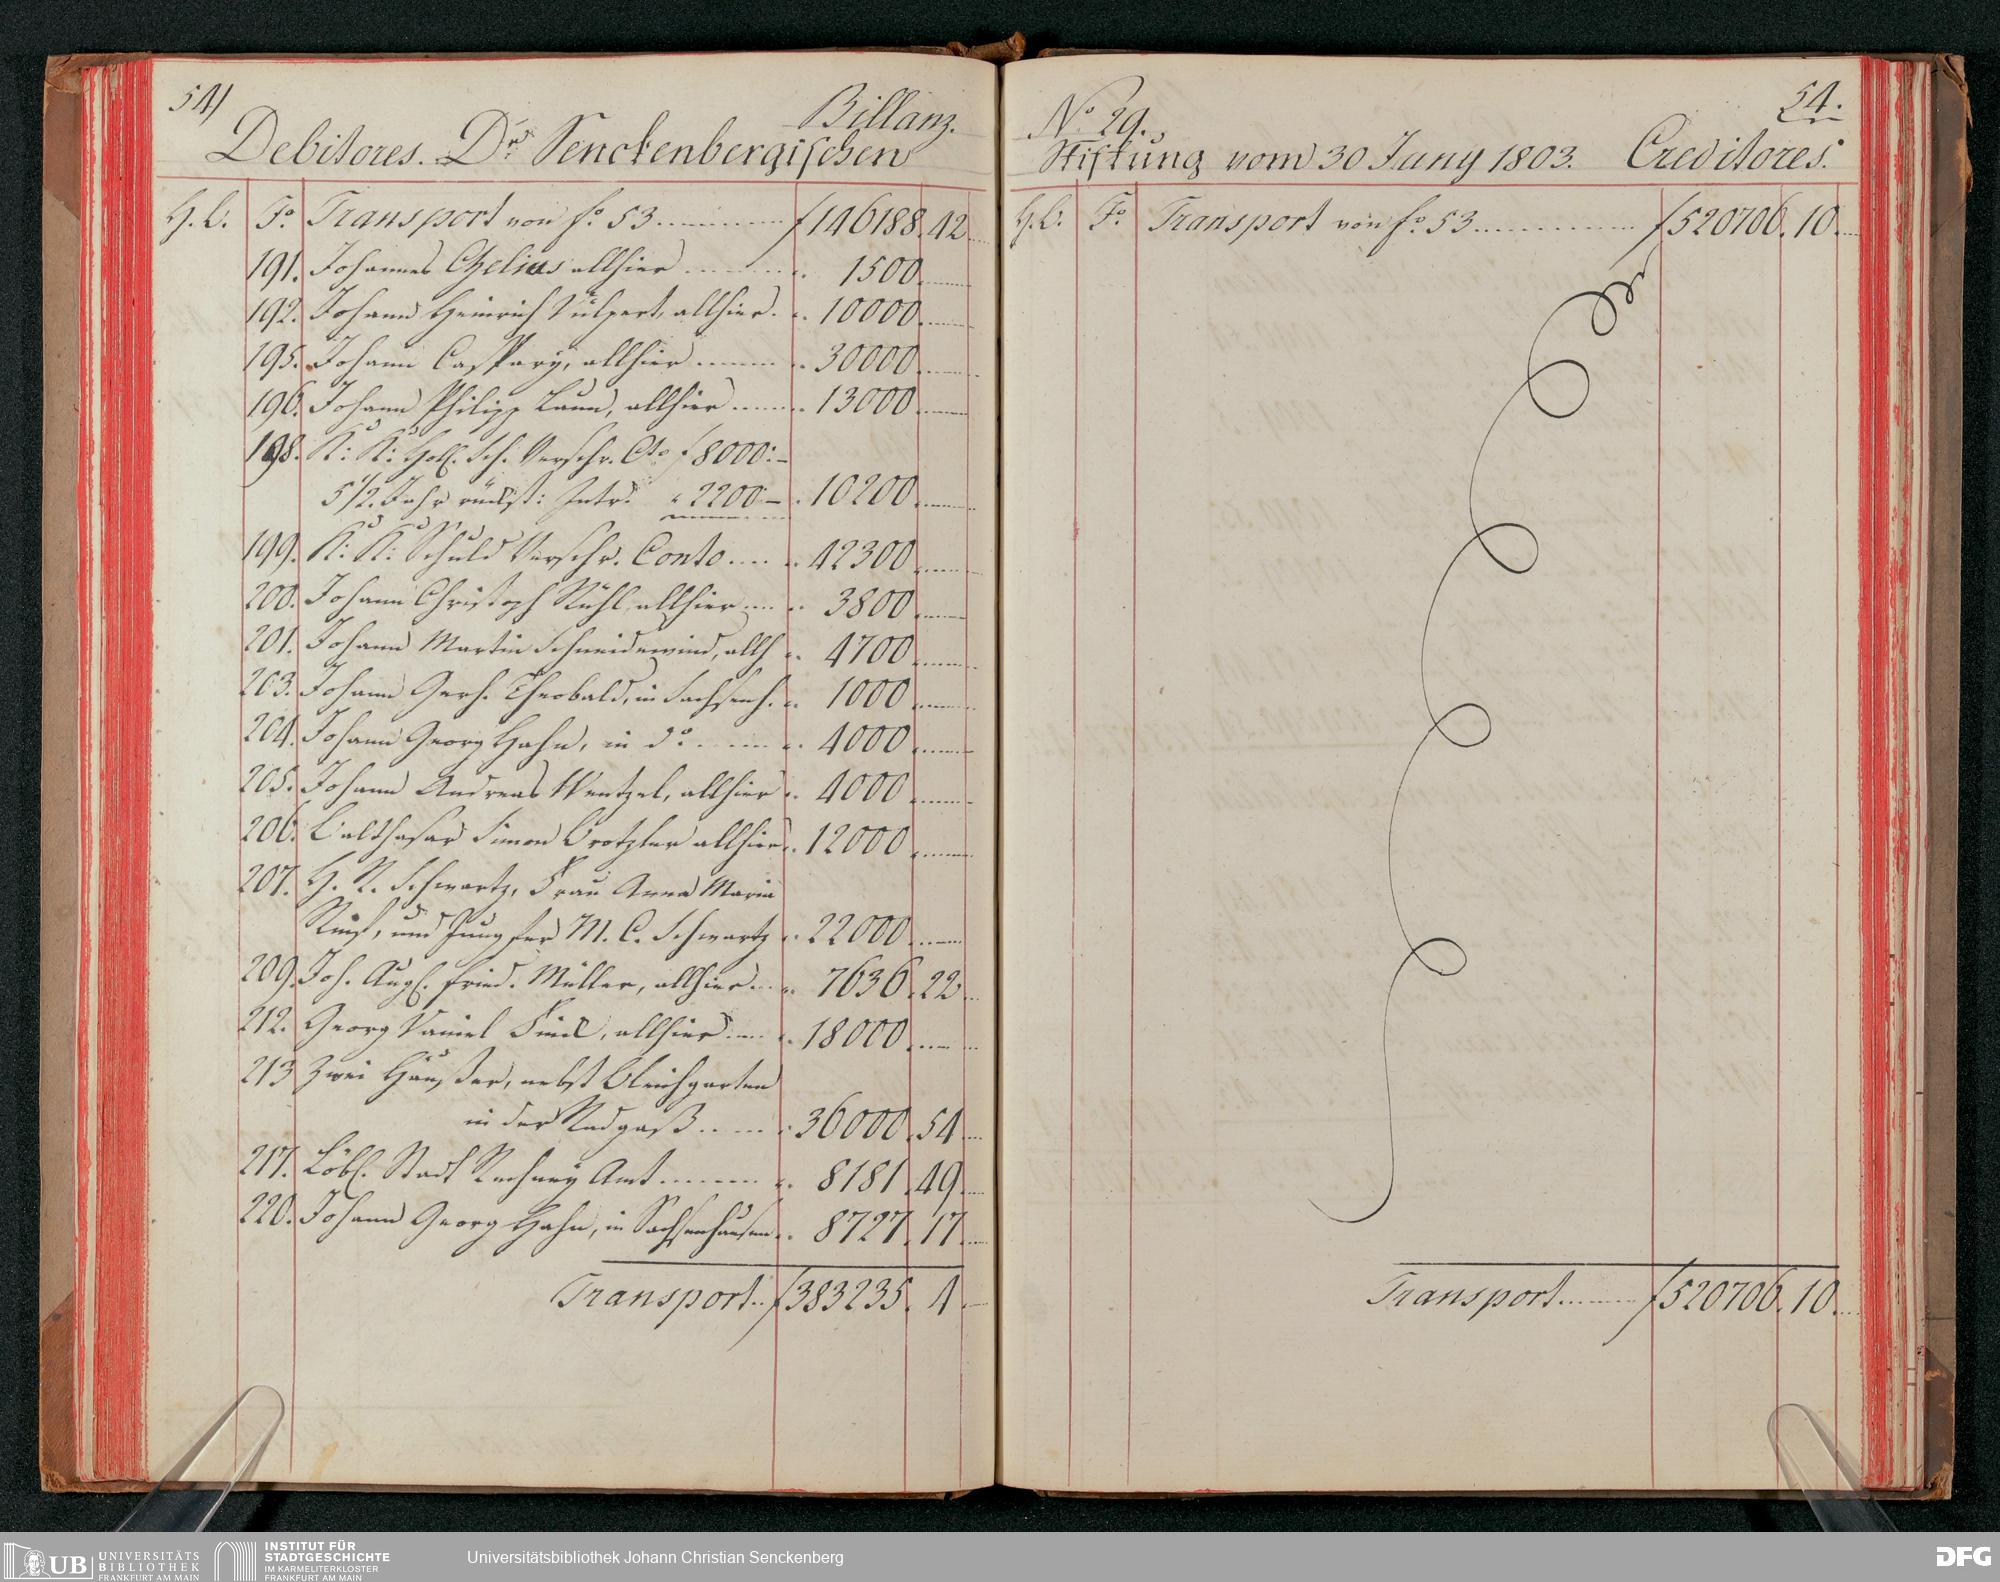 54)
Billanz.
Debitores. Dr. Senckenbergischen
H. L. Fo. Transport von fo. 53 ........ f 146188. 42
191. Johannes Chelius allhier ........ „ 1500
192. Johann Heinrich Vulpert, allhier. „ 10000
195. Johann Caspary, allhier ........ „ 30000
196. Johann Philipp Laun, allhier ........ „ 13000
198. K: K: Holl. Sch. Verschr. Cto f 8000:–
5 1/2 Jahr rückst: Intr: „ 2200:– „ 10200
199. K: K: Schuld Verschr. Conto .... „ 42300
200. Johann Christoph Rühl, allhier .... „ 3800
201. Johann Martin Schneidewind, allh „ 4700
203. Johann Gerh. Theobald, in Sachsenh. „ 1000
204. Johann Georg Hahn, in do. .... „ 4000
205. Johann Andreas Wentzel, allhier „ 4000
206. Balthasar Simon Brotzler allhier „ 12000
207. H. R. Schwartz, Frau Anna Maria
und Jungfer M. C. Schwartz „ 22000
209. Joh. Aug. Fried. Müller, allhier „ 7636. 22
212. Georg Daniel Finck, allhier .... „ 18000
213 Zwei Häußer, nebst Bleichgarten
in der Radgaß .... „ 36000. 54
217. Löbl. Stadt Rechney Amt ........ „ 8181. 49
220. Johann Georg Hahn, in Sachsenhausen „ 8727. 17
Transport .. f 383235. 4
54.
No. 29.
Stiftung vom 30 Juny 1803. Creditores.
H. L. Fo. Transport von fo. 53 ........ f 520706. 10
Transport ........ f 520706. 10
UB UNIVERSITÄTS
BIBLIOTHEK
FRANKFURT AM MAIN
INSTITUT FÜR
STADTGESCHICHTE
IM KARMELITERKLOSTER
FRANKFURT AM MAIN
Universitätsbibliothek Johann Christian Senckenberg
DFG